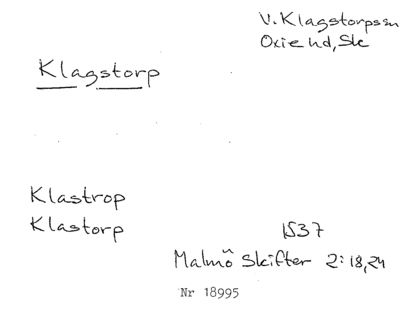 V. Klagstorps sn
Oxie hd, Sk
Klagstorp
Klastrop
Klastorp
1537
Malmö Skifter 2:18,24
Nr 18995